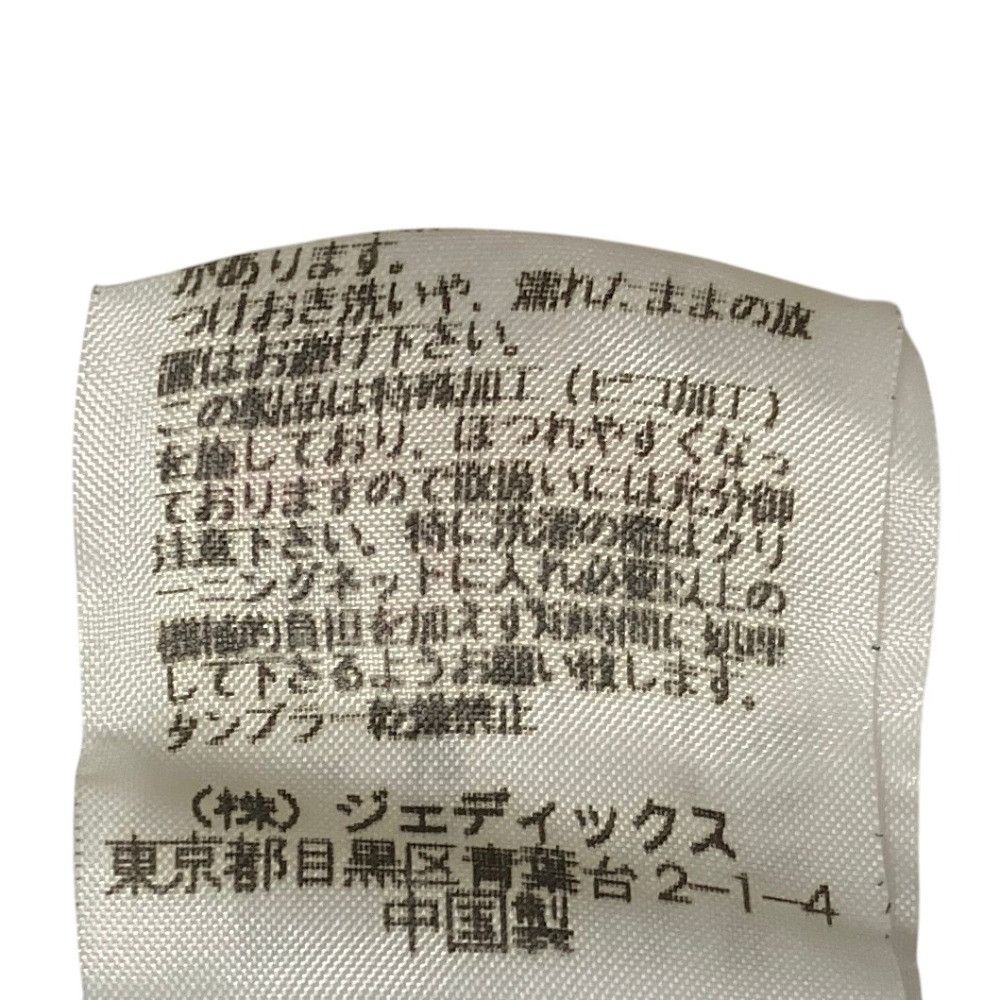 があります。
つけおき洗いや、濡れたままの放
置はお避け下さい。
この製品は特殊加工（ピコ加工）
を施しており、ほつれやすくなっ
ておりますので取扱いには充分御
注意下さい。特に洗濯の際はクリ
ーニングネットに入れ必要以上の
機械的負担を加えず短時間に処理
して下さるようお願い致します。
タンブラー乾燥禁止
（株）ジェディックス
東京都目黒区青葉台2-1-4
中国製